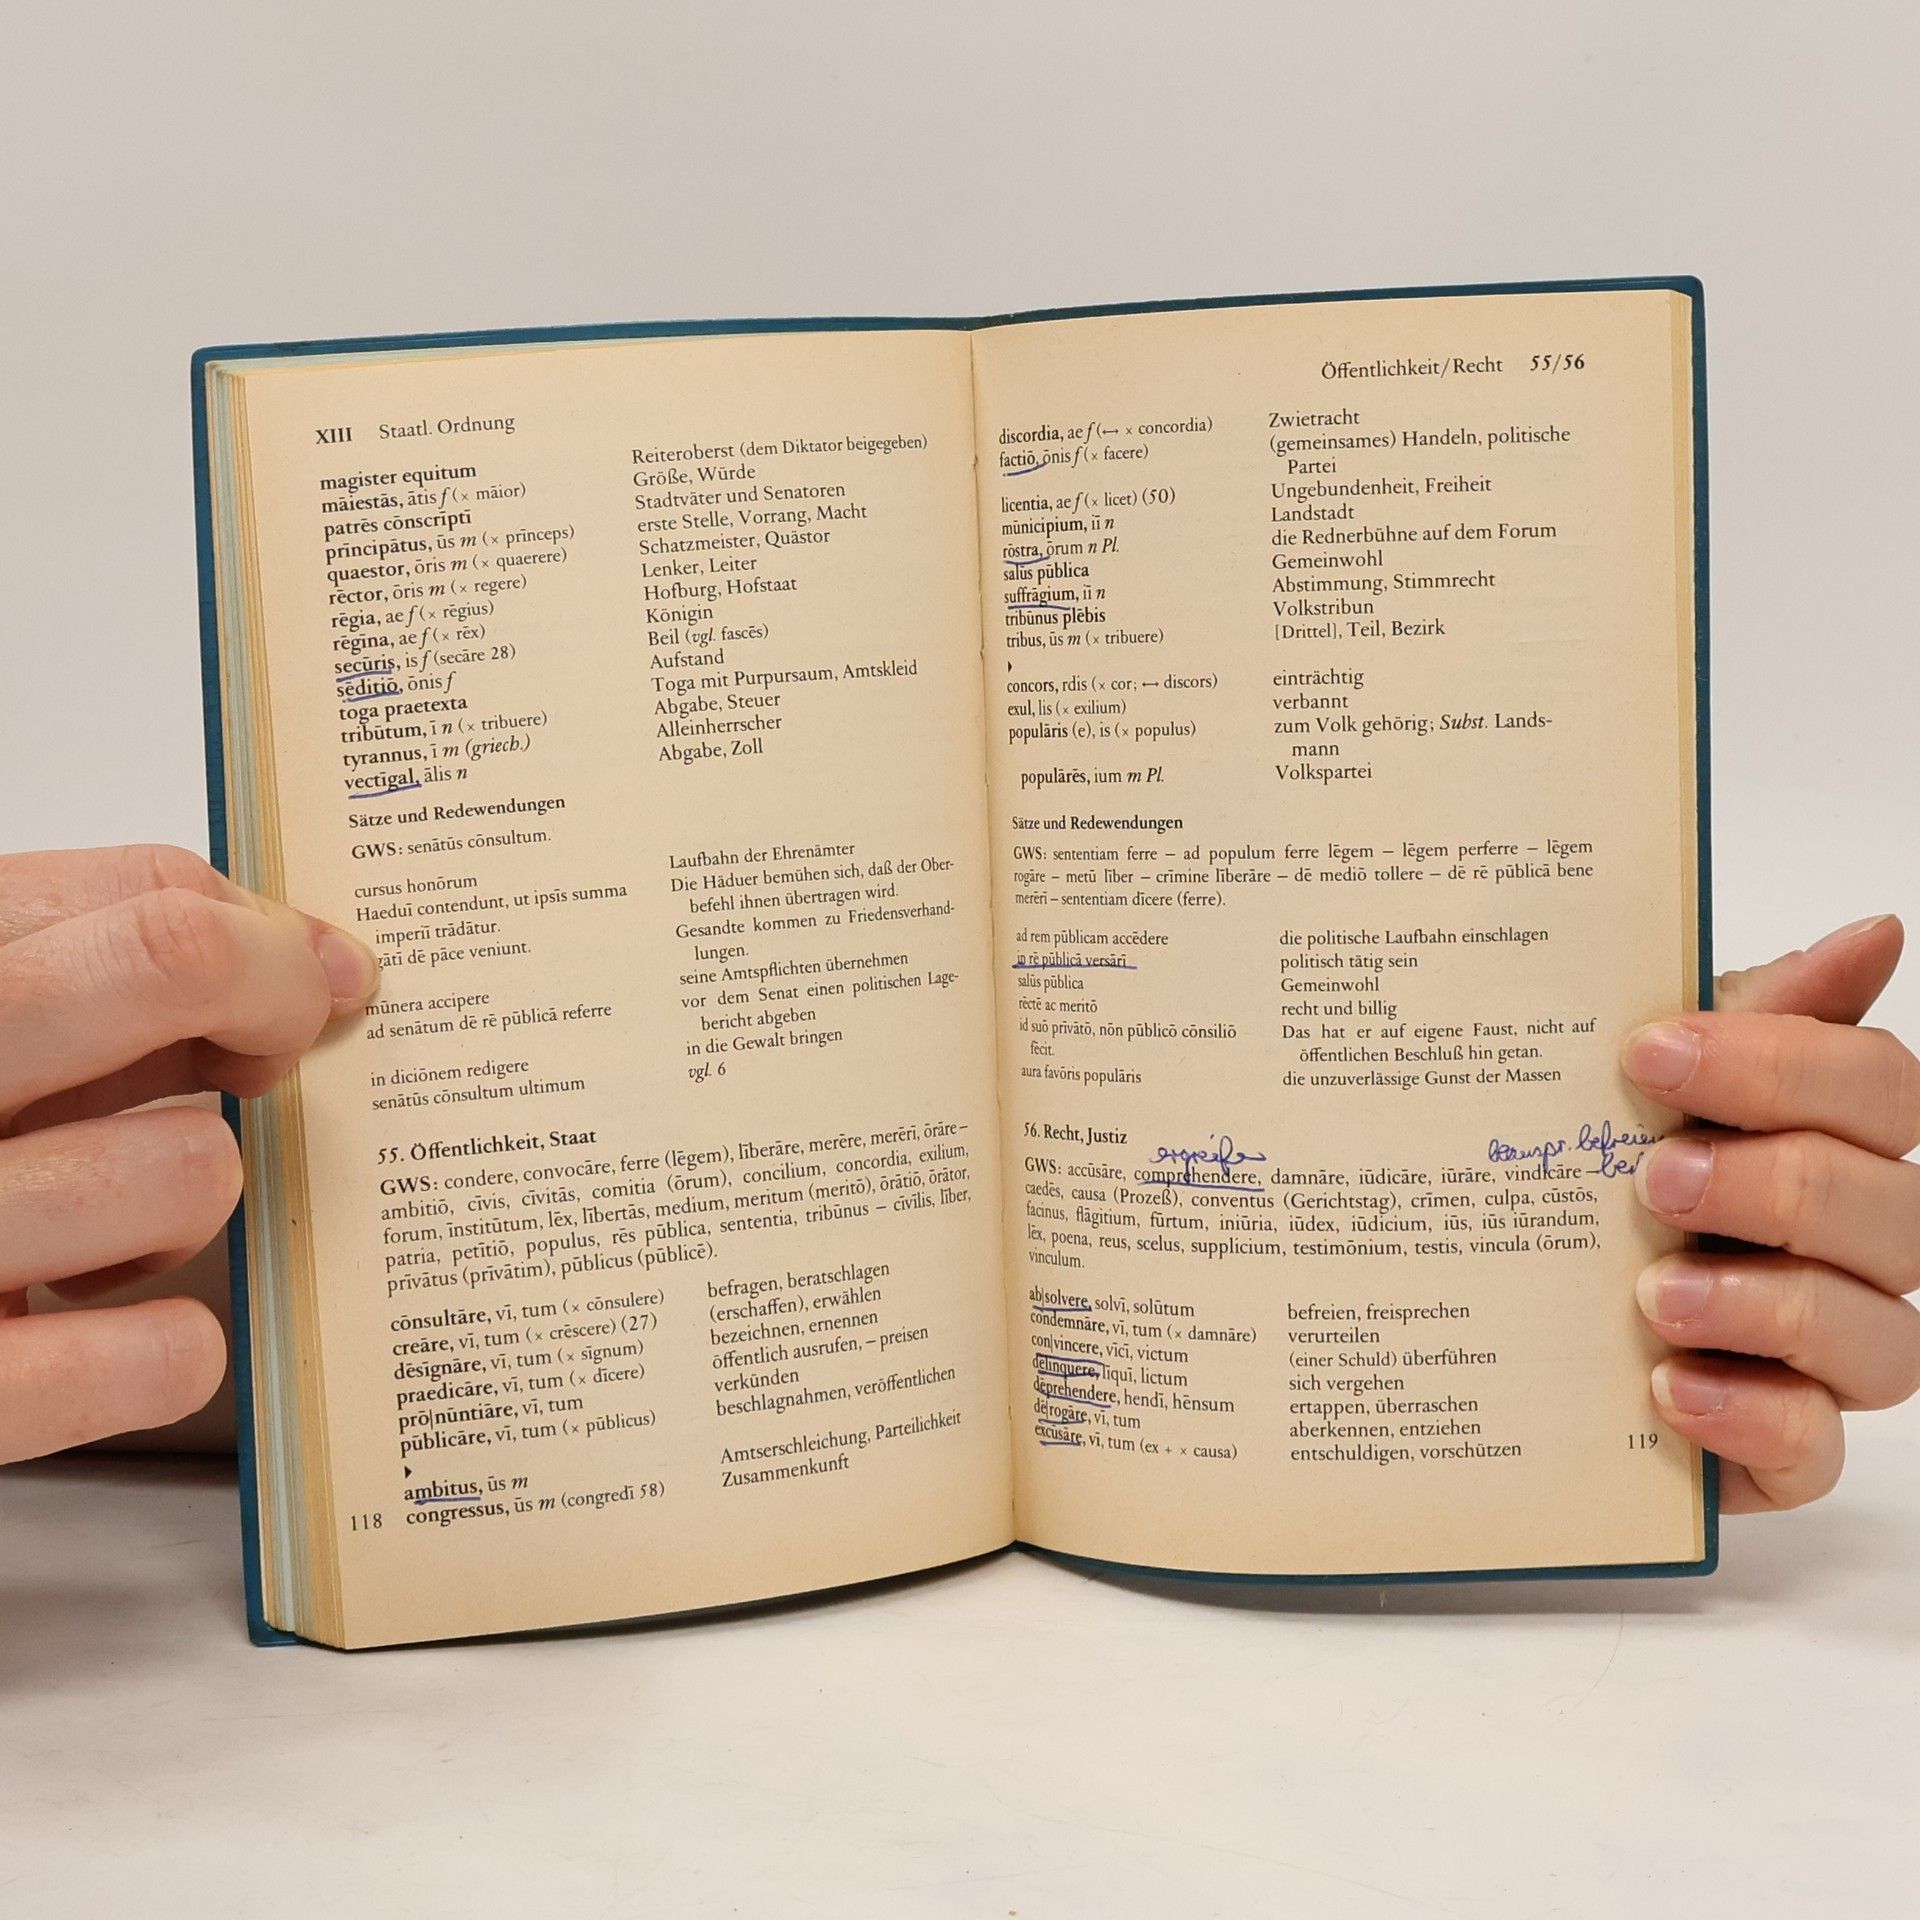 XIII Staatl. Ordnung
magister equitum Reiteroberst (dem Diktator beigegeben)
māiestās, ātis f (× māior) Größe, Würde
patrēs cōnscrīptī Stadtväter und Senatoren
prīncipātus, ūs m (× prīnceps) erste Stelle, Vorrang, Macht
quaestor, ōris m (× quaerere) Schatzmeister, Quästor
rēctor, ōris m (× regere) Lenker, Leiter
rēgia, ae f (× rēgius) Hofburg, Hofstaat
rēgīna, ae f (× rēx) Königin
secūris, is f (secāre 28) Beil (vgl. fascēs)
sēditiō, ōnis f Aufstand
toga praetexta Toga mit Purpursaum, Amtskleid
tribūtum, ī n (× tribuere) Abgabe, Steuer
tyrannus, ī m (griech.) Alleinherrscher
vectīgal, ālis n Abgabe, Zoll
Sätze und Redewendungen
GWS: senātūs cōnsultum.
cursus honōrum Laufbahn der Ehrenämter
Haeduī contendunt, ut ipsīs summa Die Häduer bemühen sich, daß der Ober-
imperiī trādātur. befehl ihnen übertragen wird.
gātī dē pāce veniunt. Gesandte kommen zu Friedensverhand-
lungen.
mūnera accipere seine Amtspflichten übernehmen
ad senātum dē rē pūblicā referre vor dem Senat einen politischen Lage-
bericht abgeben
in diciōnem redigere in die Gewalt bringen
senātūs cōnsultum ultimum vgl. 6
55. Öffentlichkeit, Staat
GWS: condere, convocāre, ferre (lēgem), līberāre, merēre, merērī, ōrāre –
ambitiō, cīvis, cīvitās, comitia (ōrum), concilium, concordia, exilium,
forum, īnstitūtum, lēx, lībertās, medium, meritum (meritō), ōrātiō, ōrātor,
patria, petītiō, populus, rēs pūblica, sententia, tribūnus – cīvīlis, līber,
prīvātus (prīvātim), pūblicus (pūblicē).
cōnsultāre, vī, tum (× cōnsulere) befragen, beratschlagen
creāre, vī, tum (× crēscere) (27) (erschaffen), erwählen
dēsīgnāre, vī, tum (× sīgnum) bezeichnen, ernennen
praedicāre, vī, tum (× dīcere) öffentlich ausrufen, – preisen
prō|nūntiāre, vī, tum verkünden
pūblicāre, vī, tum (× pūblicus) beschlagnahmen, veröffentlichen
ambitus, ūs m Amtserschleichung, Parteilichkeit
congressus, ūs m (congredī 58) Zusammenkunft
118
Öffentlichkeit/Recht 55/56
discordia, ae f (↔ × concordia) Zwietracht
factiō, ōnis f (× facere) (gemeinsames) Handeln, politische
Partei
licentia, ae f (× licet) (50) Ungebundenheit, Freiheit
mūnicipium, iī n Landstadt
rōstra, ōrum n Pl. die Rednerbühne auf dem Forum
salūs pūblica Gemeinwohl
suffrāgium, iī n Abstimmung, Stimmrecht
tribūnus plēbis Volkstribun
tribus, ūs m (× tribuere) [Drittel], Teil, Bezirk
concors, rdis (× cor; ↔ discors) einträchtig
exul, lis (× exilium) verbannt
populāris (e), is (× populus) zum Volk gehörig; Subst. Lands-
mann
populārēs, ium m Pl. Volkspartei
Sätze und Redewendungen
GWS: sententiam ferre – ad populum ferre lēgem – lēgem perferre – lēgem
rogāre – metū līber – crīmine līberāre – dē mediō tollere – dē rē pūblicā bene
merērī – sententiam dīcere (ferre).
ad rem pūblicam accēdere die politische Laufbahn einschlagen
in rē pūblicā versārī politisch tätig sein
salūs pūblica Gemeinwohl
rēctē ac meritō recht und billig
id suō prīvātō, nōn pūblicō cōnsiliō Das hat er auf eigene Faust, nicht auf
fēcit. öffentlichen Beschluß hin getan.
aura favōris populāris die unzuverlässige Gunst der Massen
56. Recht, Justiz
ergreifen beanspr. befreien
GWS: accūsāre, comprehendere, damnāre, iūdicāre, iūrāre, vindicāre –
caedēs, causa (Prozeß), conventus (Gerichtstag), crīmen, culpa, cūstōs,
facinus, flāgitium, fūrtum, iniūria, iūdex, iūdicium, iūs, iūs iūrandum,
lēx, poena, reus, scelus, supplicium, testimōnium, testis, vincula (ōrum),
vinculum.
ab|solvere, solvī, solūtum befreien, freisprechen
condemnāre, vī, tum (× damnāre) verurteilen
con|vincere, vīcī, victum (einer Schuld) überführen
dēlinquere, līquī, lictum sich vergehen
dēprehendere, hendī, hēnsum ertappen, überraschen
dē|rogāre, vī, tum aberkennen, entziehen
excūsāre, vī, tum (ex + × causa) entschuldigen, vorschützen
119